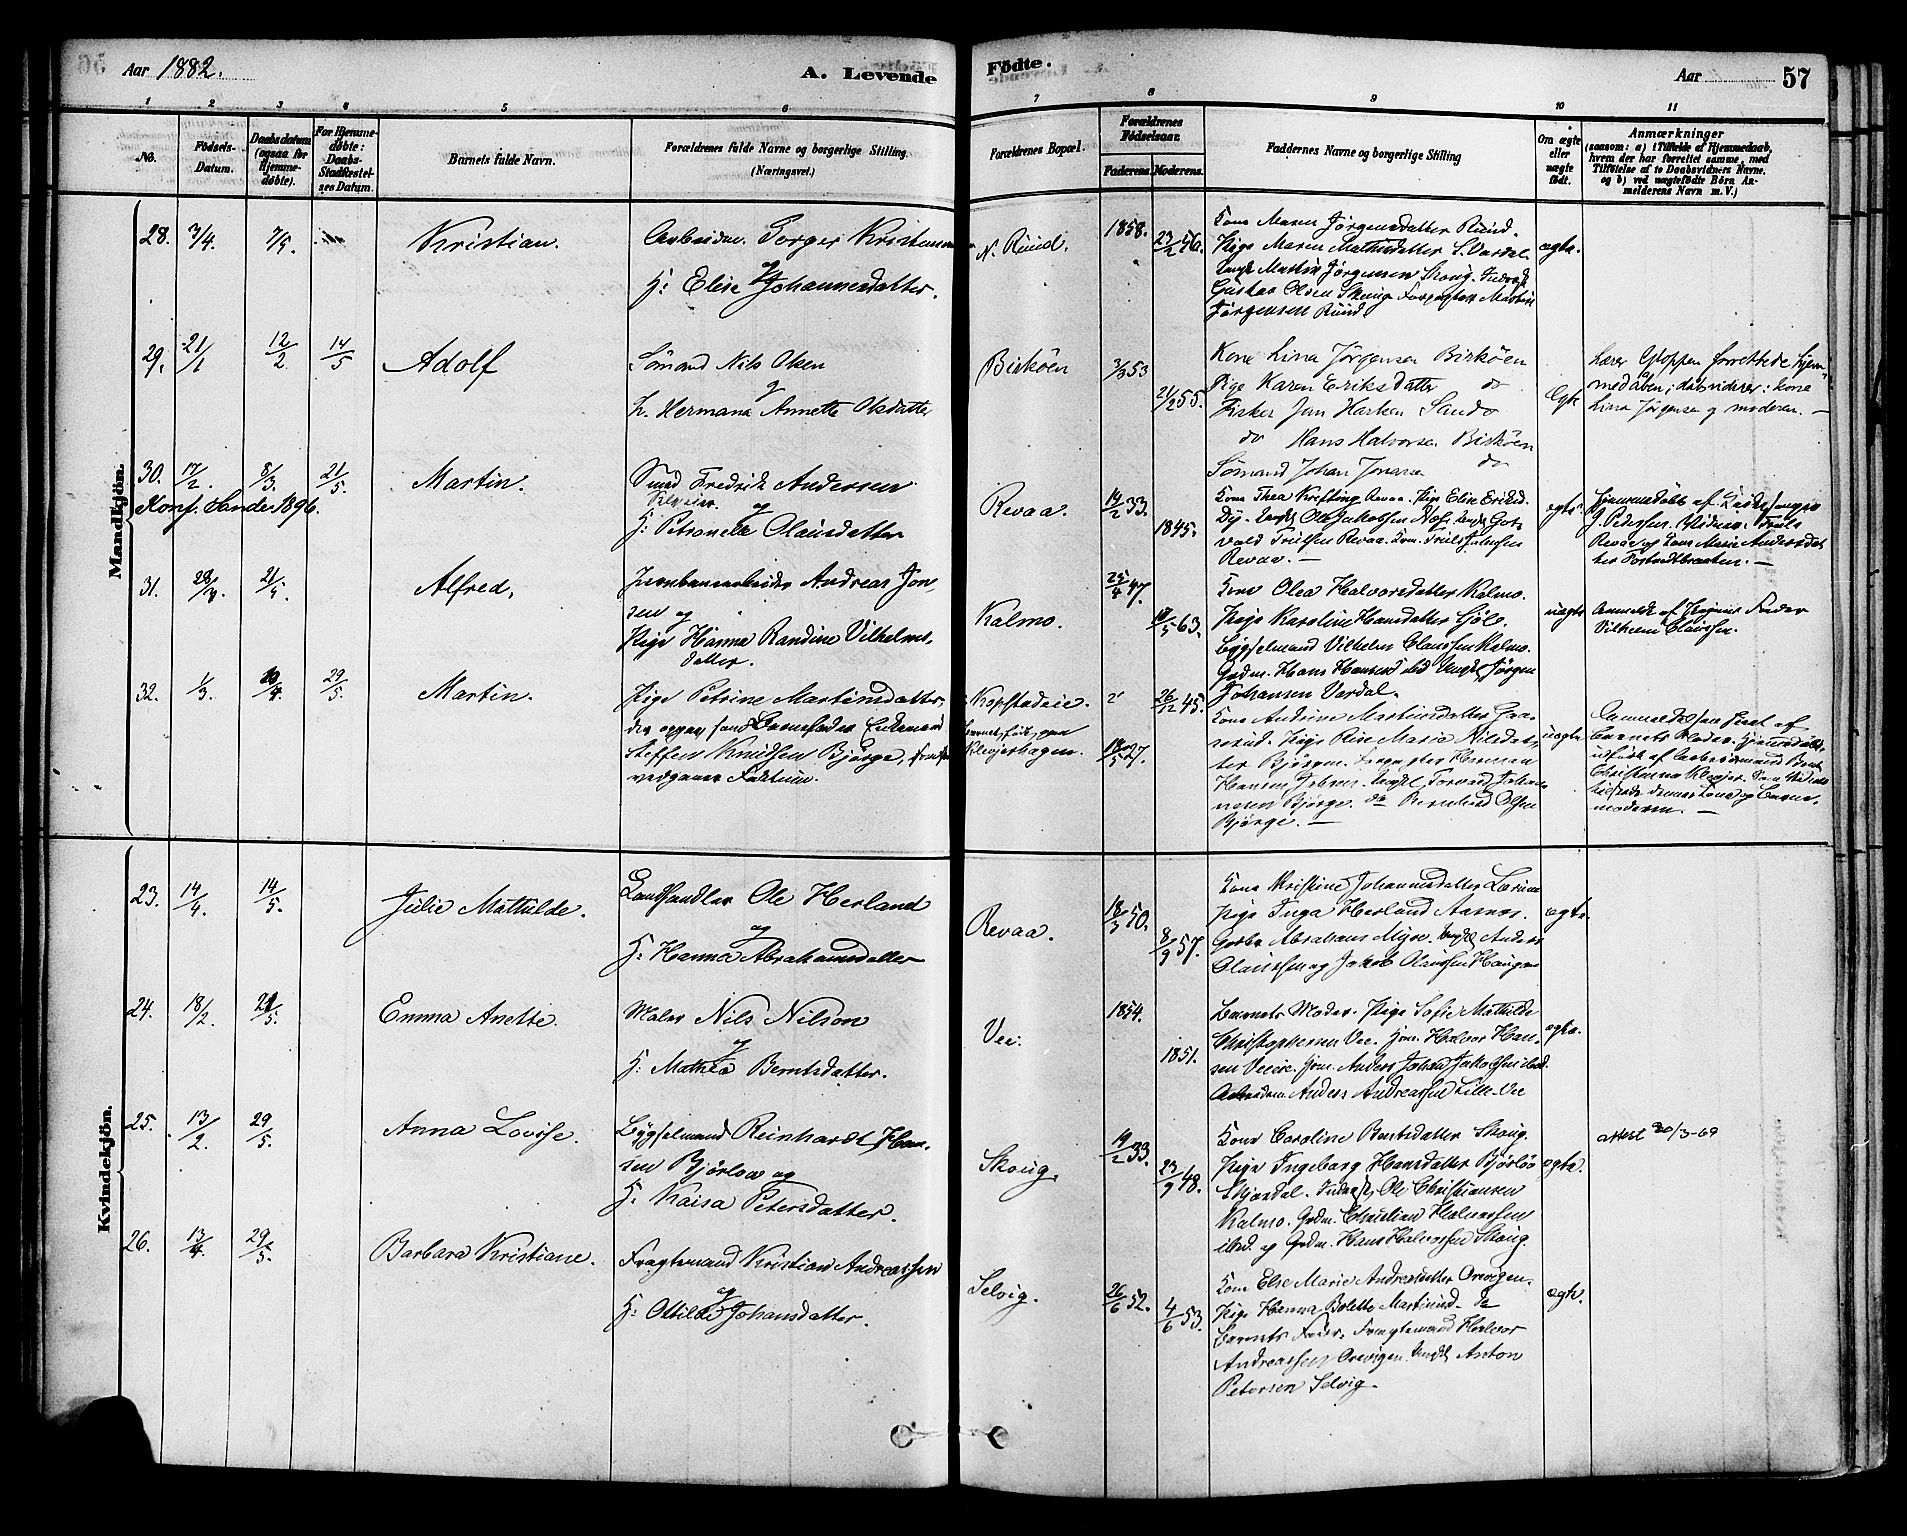 Aar 1882.
A. Levende Fødte.
Aar
57
1 2 3 4 5 6 7 8 9 10 11
No.
Fødsels-Datum.
Daabsdatum (ogsaa for Hjemmedøbte).
For Hjemmedøbte: Daabs-Stadfæstelses Datum.
Barnets fulde Navn.
Forældrenes fulde Navne og borgerlige Stilling. (Næringsvei.)
Forældrenes Bopæl.
Forældrenes Fødselsaar.
Faderens. Moderens.
Faddernes Navne og borgerlige Stilling
Om ægte eller uægte født.
Anmærkninger
(saasom: a) i Tilfælde af Hjemmedaab, hvem der har forrettet samme, med Tilføielse af to Daabsvidners Navne, og b) ved uægtefødte Børn Anmelderens Navn m. V.)
Mandkjøn.
28. 3/4 7/5 Kristian.
Arbeidm. Torger Kristensen
og
H: Elise Johannesdatter.
N. Ruud.
1858. 23/2 46.
Kone Maren Jørgensdatter Ruud.
Pige Maren Mathisdatter S. Vardal.
Ungk Martin Jørgensen Skoug. Inderst
Gustav Olsen Skoug Forpagter Martin
Jørgensen Ruud.
ægte.
29. 21/1 12/2 14/5 Adolf
Sømand Nils Olsen
og
h. Hermana Annette Olsdatter
Birköen
3/3 53 21/2 55.
Kone Lina Jørgensen Birköen
Pige Karen Eriksdatter do
Fisker Jan Harken Sando
do Hans Halvorsen Birköen
Sømand Johan Jonsen do
Ægte
Lærer Gloppen forrettede hjem-
medaaben; dabsvidner: kone
Lina Jørgensen og moderen. —
30. 17/2 8/3 21/5. Martin.
Konf. Sande 1896.
Smed Fredrik Andersen
og
H: Petronelle Olausdatter
Revaa.
19/2 33. 1845.
Kone Thea Krefting Revaa. Pige Elise Eriksd.
Ole Jakobsen
Truls Johnsen
Revaa. —
ægte.
Hjemmedøbt af
J. Pedersen. Vidner: Truls
Revaa og Kone Marie Andersdat-
ter —
31. 28/4 21/5. Alfred,
Jernbanearbeider Andreas Jon-
sen og
Pige Hanna Randine Vilhelms-
datter.
Kalmo.
25/4 47. 63.
Kone Olea Halvorsdatter Kalmo.
Pige Karoline Hansdatter
Bygselmand Vilhelm Claussen Kalmo.
Gdm. Hans Hansen ibd Ungk Jørgen
Johansen Vardal.
uægte
Anmeldt af Pigens Fader
Vilhelm Claussen.
32. 1/3. 10/4 29/5. Martin.
Pige Petrine Martinsdatter,
der opgav som Barnefader Enkemand
Steffen Knudsen Bjørge,
vedgaaer Faktum.
Kopstadeie.
Barnet født paa
Klevjerhagen.
26/12 45. 18/5 27.
Kone Andrine Martinsdatter
Pige Rise Marie Nilsdat-
ter Bjørge. Hermen
Hansen Ungk Torvald Johan-
nesen Bjørge. do Bernhard Olsen
Bjørge. —
uægte
Barnets Moder. Hjemmedøbt,
udført af Arbeidsmand Bernt
Christensen
denne Kone og Barne-
moderen. —
Kvindekjøn.
23. 14/4 14/5. Julie Mathilde.
Landhandler Ole Herland
og
H: Hanna Abrahamsdatter
Revaa.
18/3 50. 8/9 57.
Kone Kristine Johannesdatter
Pige Inga Herland Aasnes.
Abrahams Myre. Ungk Anders
Claussen og Jakob Claussen Haugan
ægte.
24. 18/2. 21/5. Emma Anette.
Maler Nils Nilson
og
H: Mathea Berntsdatter.
Vee.
1854. 1851.
Barnets Moder. Pige Sofie Mathilde
Christophersen Vee. Gdm. Halvor Han-
sen Veeie. Gdm. Anders Johan Jakobsen ibid.
Arbeidsm. Anders Andreassen Lille-Vee
ægte.
25. 13/2. 29/5. Anna Lovise.
Bygselmand Reinhardt Han-
sen Bjørlow og
H: Kaisa Petersdatter.
Skoug.
19/2 33. 23/9 48.
Kone Caroline Berntsdatter Skoug.
Pige Ingeborg Hansdatter Bjørlöv
Skjærdal. Inderst Ole Christiansen
Kalmo. Gdm. Christian Halvorsen
ibd. og Gdm. Hans Halvorsen Skoug.
ægte.
attest 20/3-69
26. 13/4. 29/5. Barbara Kristiane.
Fragtemand Kristian Andreassen
og
H: Ottilde Johansdatter.
Selvig.
26/6 52. 4/6 53.
Kone Else Marie Andreasdatter Orevigen.
Pige Hanna Bolette Martinsd. do
Barnets Fader. Fragtemand Halvor
Andreassen Orevigen. Ungk Anton
Petersen Selvig.
ægte.